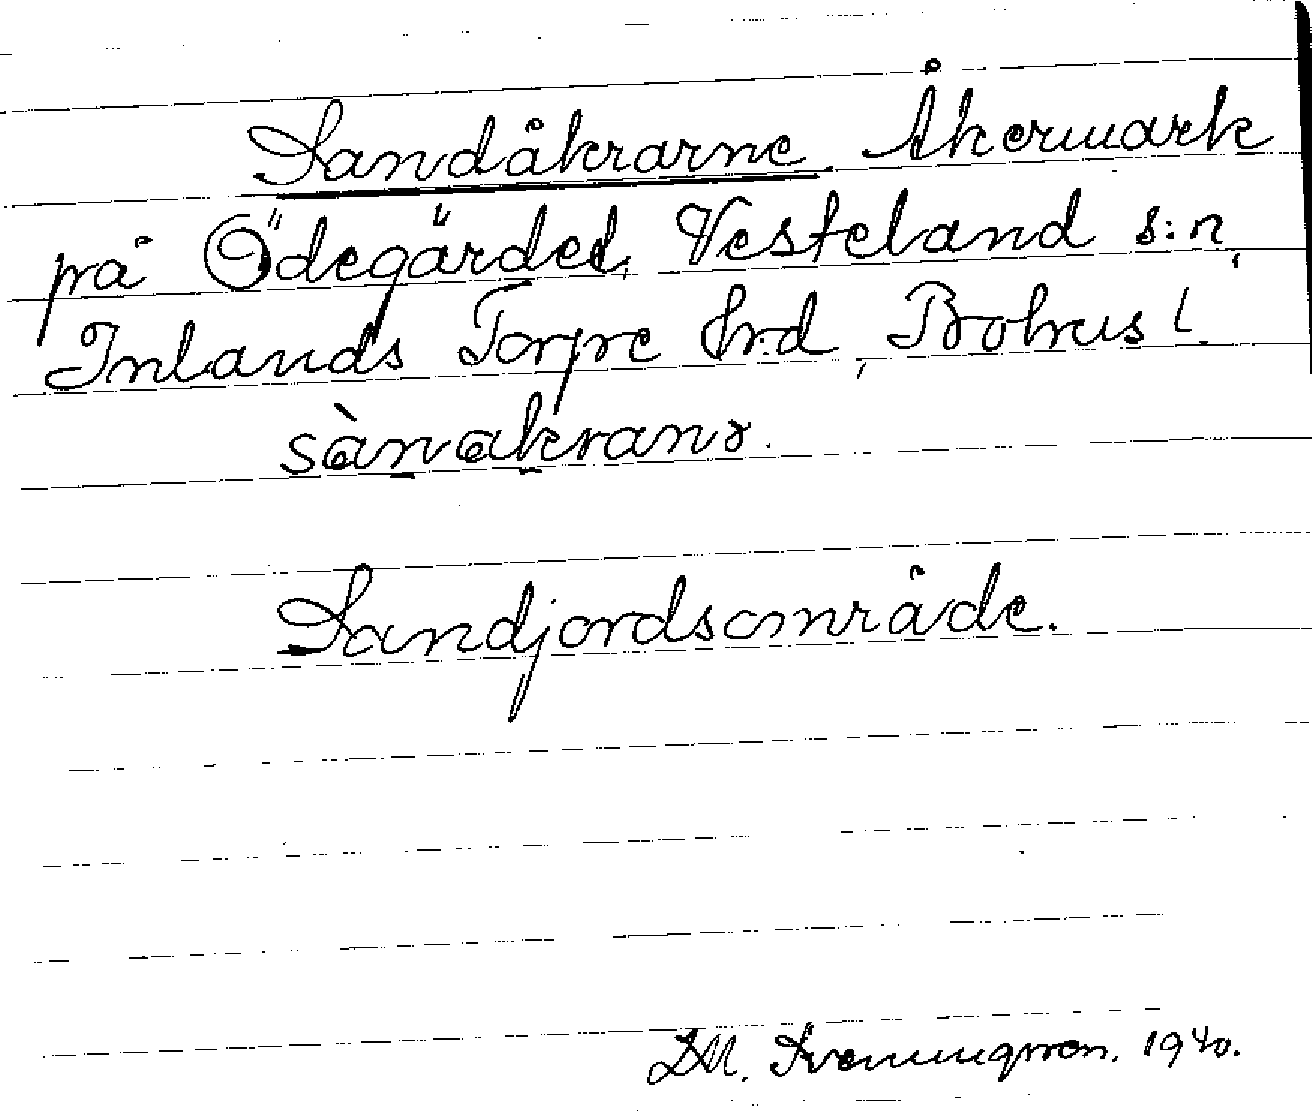 Sandåkrarne. Åkermark
på Ödegärdet, Vesteland s:n,
Inlands Torpe hrd, Bohus l.
sànakranɤ.
Sandjordsområde.
D.M. Sveningsson. 1940.